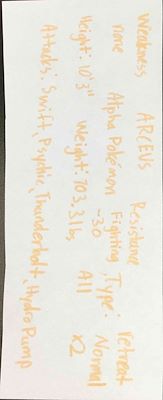 Weakness ARCEUS Resistance retreat
none Alpha Pokémon Fighting, Type: Normal
-30 All
Height: 10'3" Weight: 703.3 lbs. x2
Attacks: Swift, Psychic, Thunderbolt, Hydro Pump